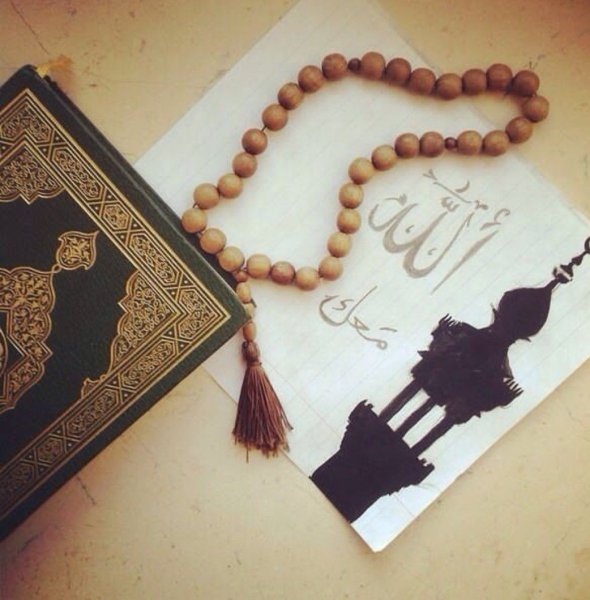 اللّٰه
مَعك